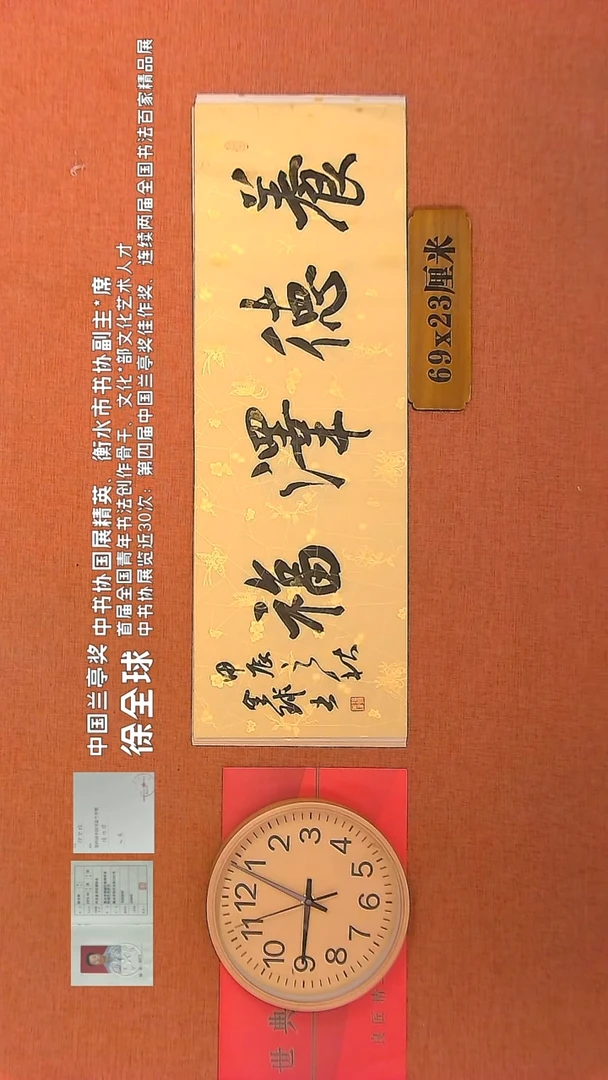 中国兰亭奖 中书协国展精英、衡水市书协副主*席
徐全球
首届全国青年书法创作骨干、文化*部文化艺术人才
中书协展览近30次：第四届中国兰亭奖佳作奖、连续两届全国书法百家精品展
養德澤福
甲辰之秋
全球书
69x23厘米
12 1 2 3 4 5 6 7 8 9 10 11
世典